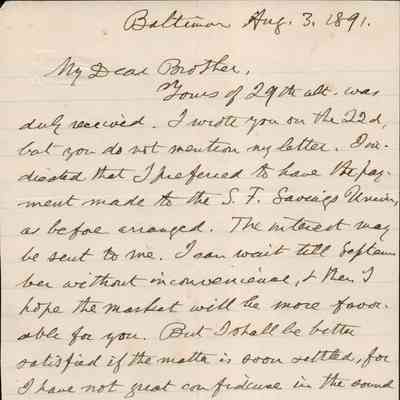 Baltimore Aug. 3, 1891.
My Dear Brother,
Yours of 29th ult. was
duly received. I wrote you on the 22d,
but you do not mention my letter. I in-
dicated that I preferred to have the pay-
ment made to the S. F. Savings Union,
as before arranged. The interest may
be sent to me. I can wait till Septem
ber without inconvenience, & then I
hope the market will be more favor-
able for you. But I shall be better
satisfied if the matter is soon settled, for
I have not great confidence in the sound